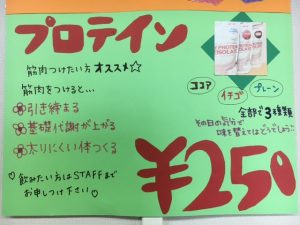 プロテイン
筋肉つけたい方 オススメ☆
筋肉をつけると…
引き締まる
基礎代謝が上がる
太りにくい体つくる
♡飲みたい方はSTAFFまで
お申しつけ下さい♡
ココア
イチゴ
プレーン
全部で3種類
その日の気分で
味を替えてはどうでしょう!!
¥250